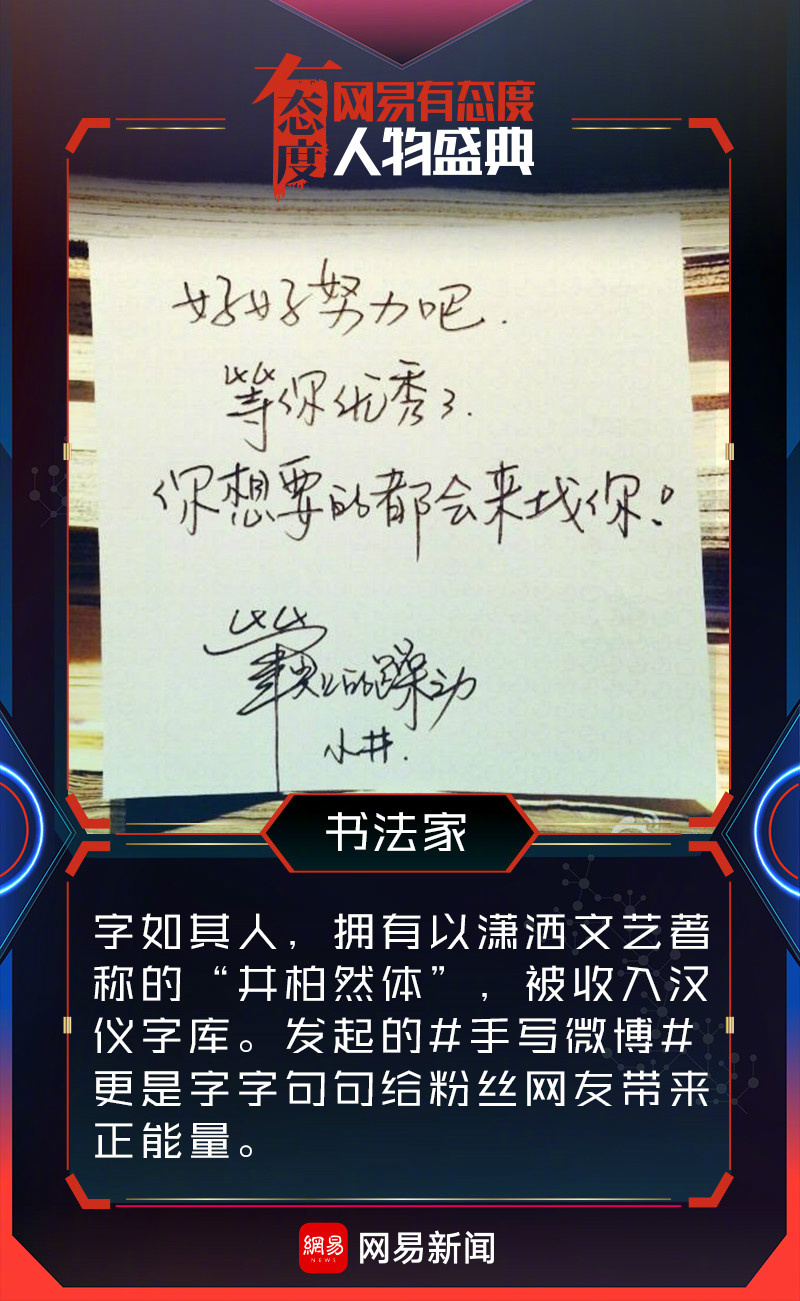 有态度
网易有态度
人物盛典
好好努力吧.
等你优秀了.
你想要的都会来找你!
的躁动
小井.
书法家
字如其人，拥有以潇洒文艺著
称的“井柏然体”，被收入汉
仪字库。发起的#手写微博#
更是字字句句给粉丝网友带来
正能量。
網易
NEWS
网易新闻